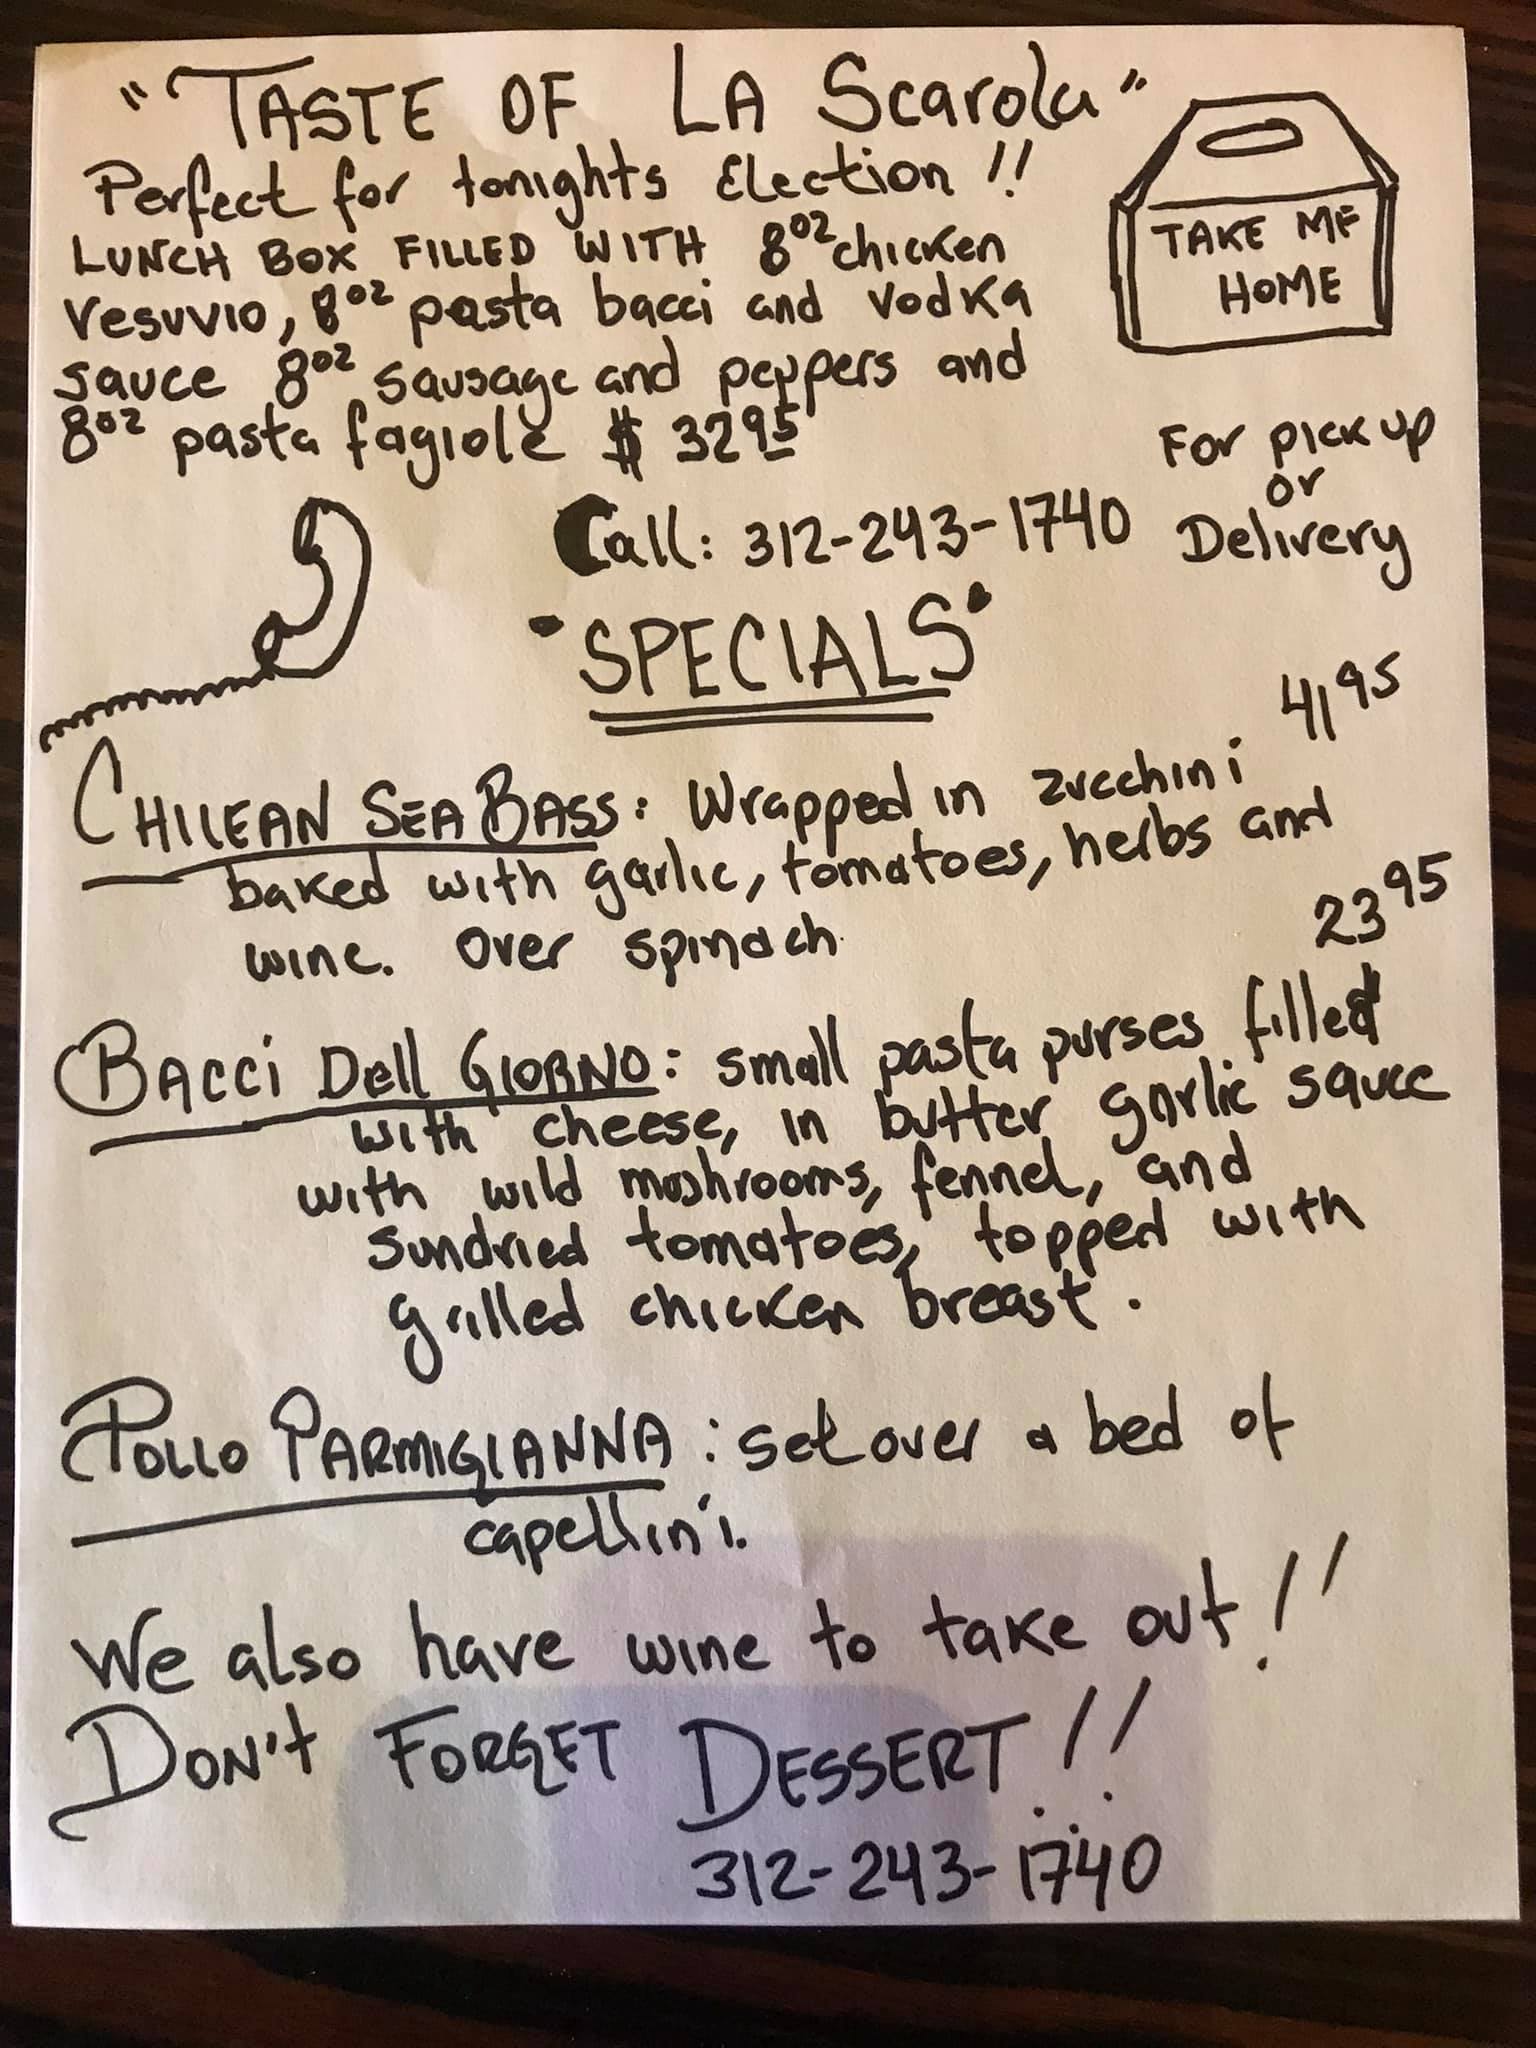 "TASTE OF LA Scarola"
Perfect for tonights Election!!
LUNCH BOX FILLED WITH 8oz chicken
vesuvio, 8oz pasta bacci and vodka
sauce 8oz sausage and peppers and
8oz pasta fagiole $ 32 95
TAKE ME
HOME
For pick up
or
Delivery
Call: 312-243-1740
"SPECIALS"
41 95
CHILEAN SEA BASS: Wrapped in zucchini
baked with garlic, tomatoes, herbs and
wine. Over spinach
23 95
BACCi Dell GIORNO: small pasta purses filled
with cheese, in butter garlic sauce
with wild mushrooms, fennel, and
sundried tomatoes, topped with
grilled chicken breast.
POLLO PARMIGIANNA: set over a bed of
capellini.
We also have wine to take out!!
DON't FORGET DESSERT!!
312-243-1740